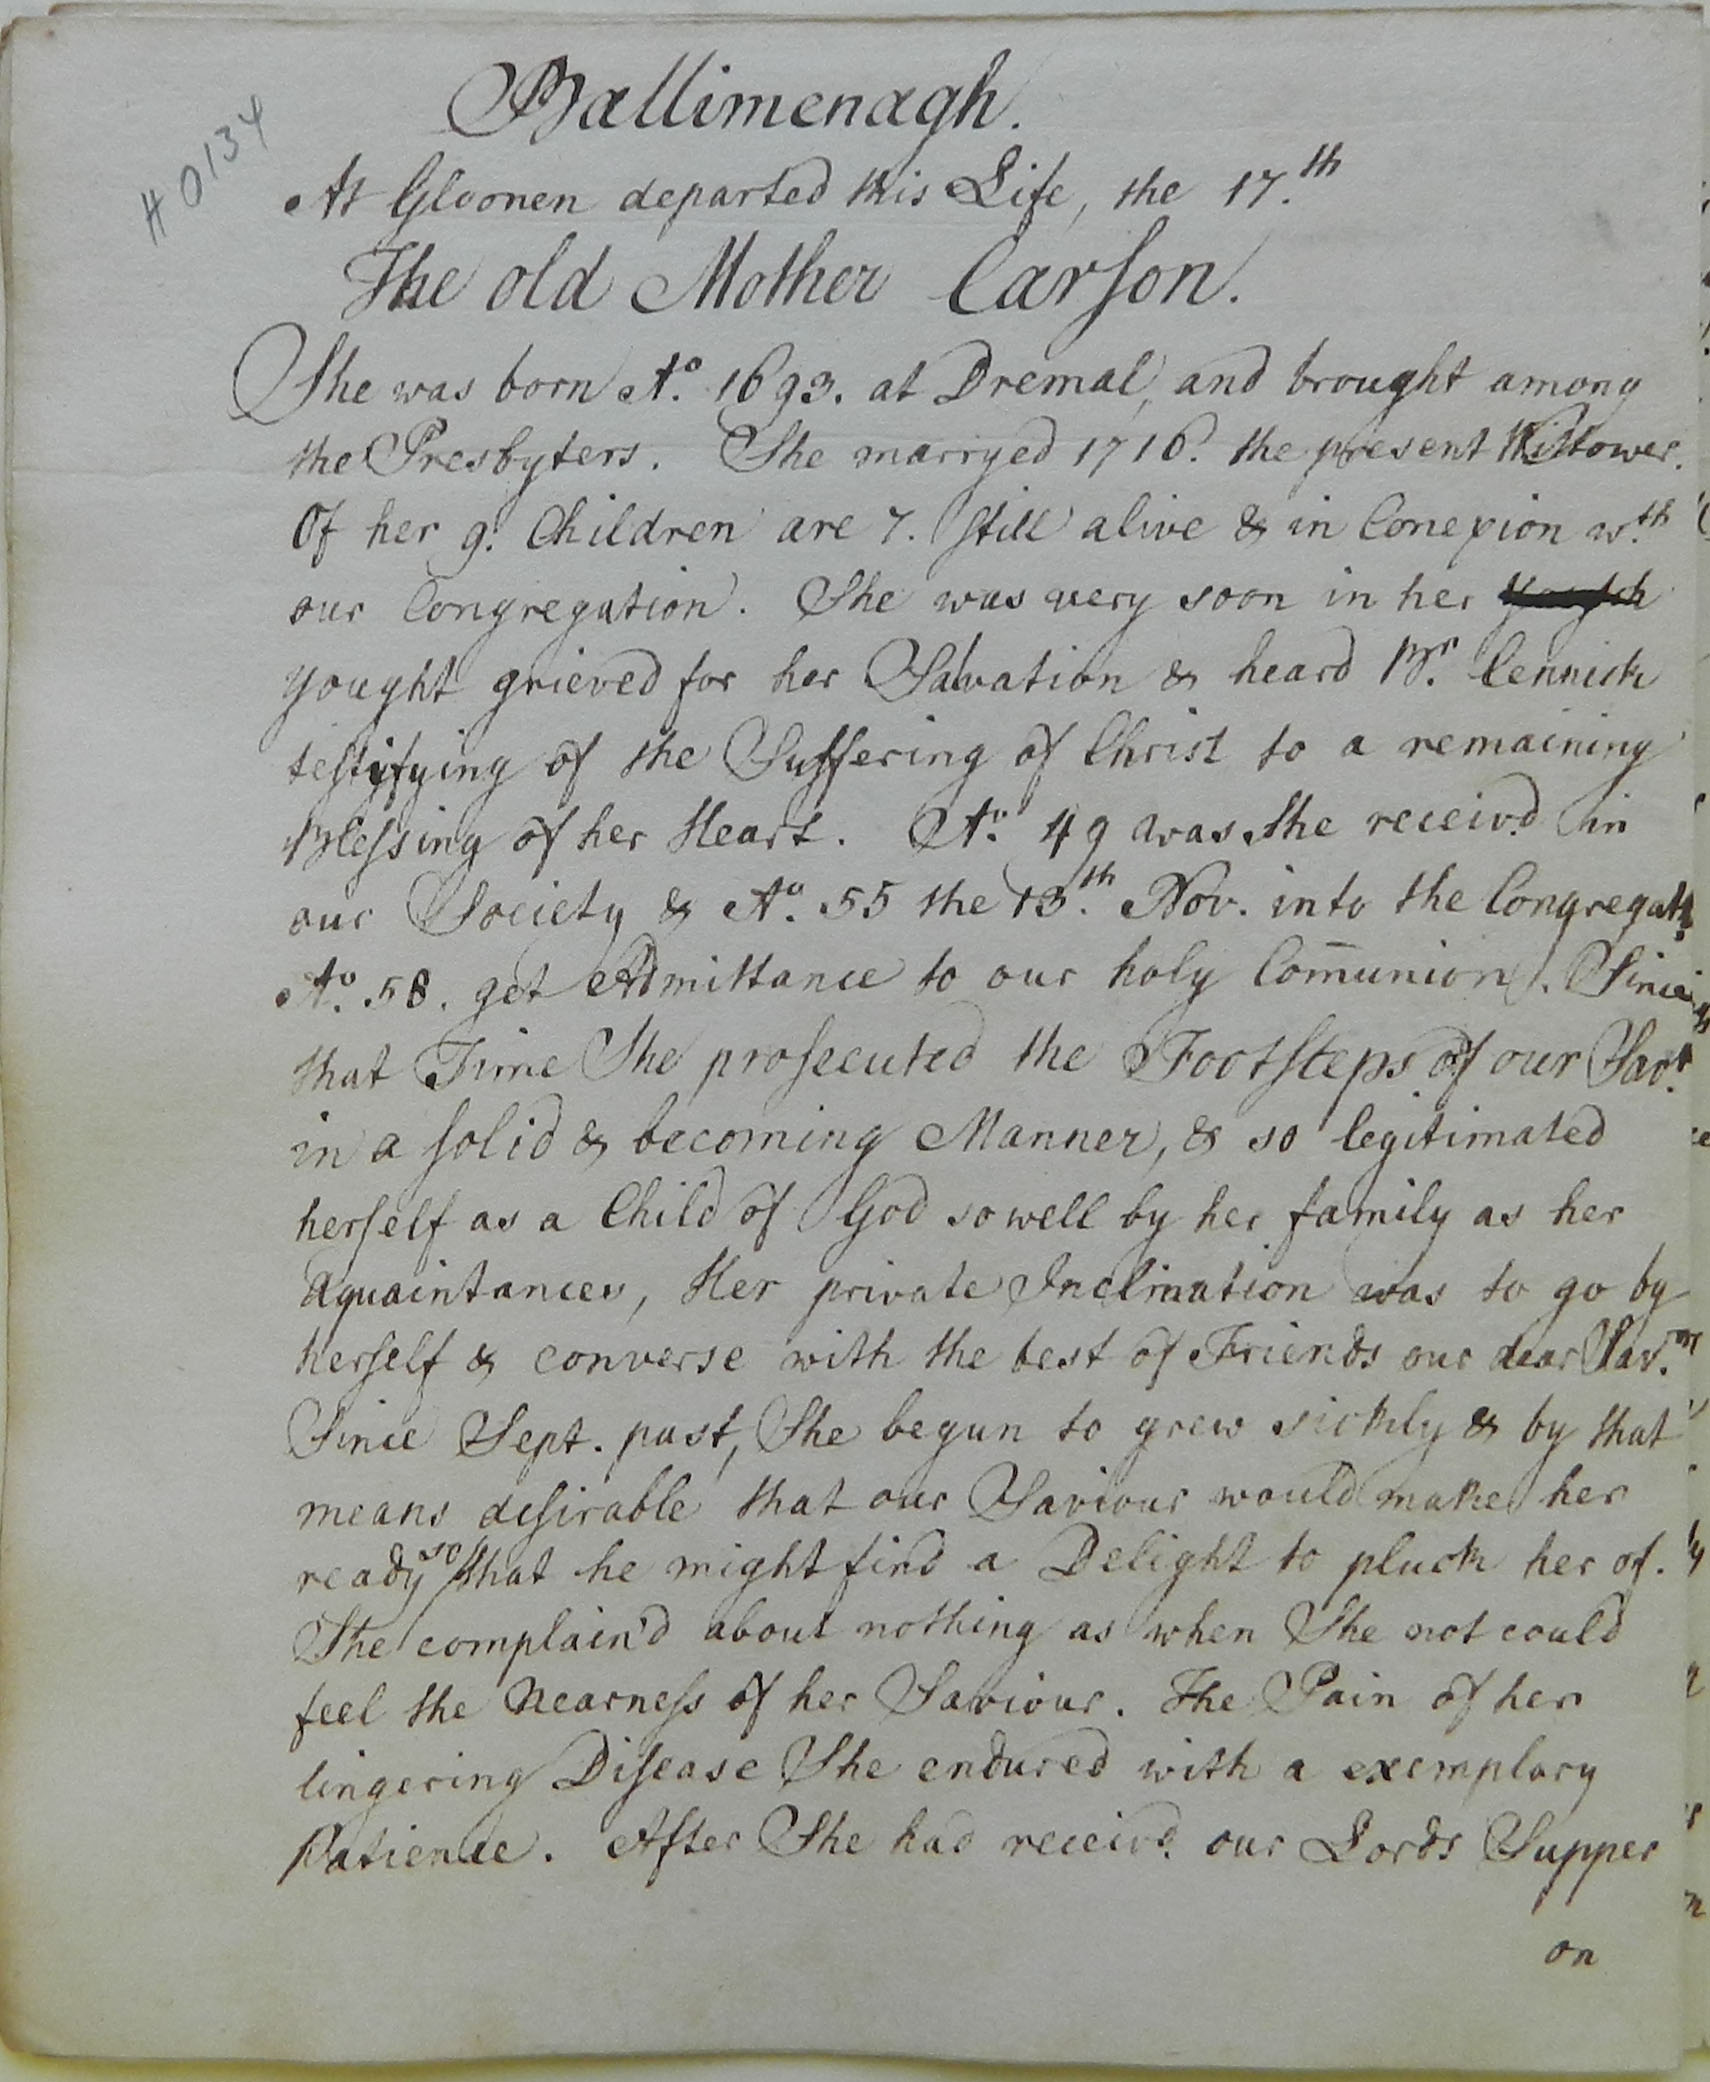 H 0134
Ballimenagh.
At Gloonen departed this Life, the 17.th
The old Mother Carson.
She was born Ao. 1693. at Dremal, and brought among
the Presbyters. She marryed 1716. the present Wittower.
Of her 9. Children are 7. still alive & in Conexion w.th
our Congregation. She was very soon in her
yought grieved for her Salvation & heard Br. Cennick
testifying of the Suffering of Christ to a remaining
Blessing of her Heart. Ao. 49 was She receiv'd in
our Society & Ao. 55 the 13.th Nov. into the Congregat.
Ao. 58. get Admittance to our holy Com̄union. Since
that Time She prosecuted the Footsteps of our Savr.
in a solid & becoming Manner, & so legitimated
herself as a Child of God so well by her family as her
aquaintances, Her private Inclination was to go by
herself & converse with the best of Friends our dear Sav.our
Since Sept. past, She begun to grew sickly & by that
means desirable that our Saviour would make her
ready so that he might find a Delight to pluck her of.
She complain'd about nothing as when She not could
feel the Nearness of her Saviour. The Pain of her
lingering Disease She endured with a exemplary
Patience. After She had receiv'd our Lords Supper
on